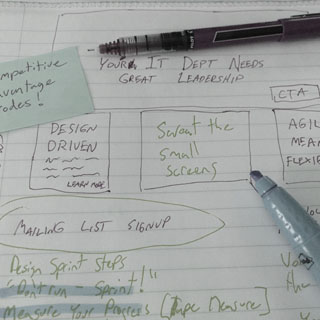 ompetitive
vantage
odes!
Your IT Dept Needs
Great Leadership
CTA
DESIGN
DRIVEN
LEARN MORE
Sweat the
small
screens
AGIL
MEAN
FLEXIB
MAILING LIST SIGNUP
Design Sprint Steps
"Don't run - Sprint!"
Measure Your Progress [Tape Measure]
the